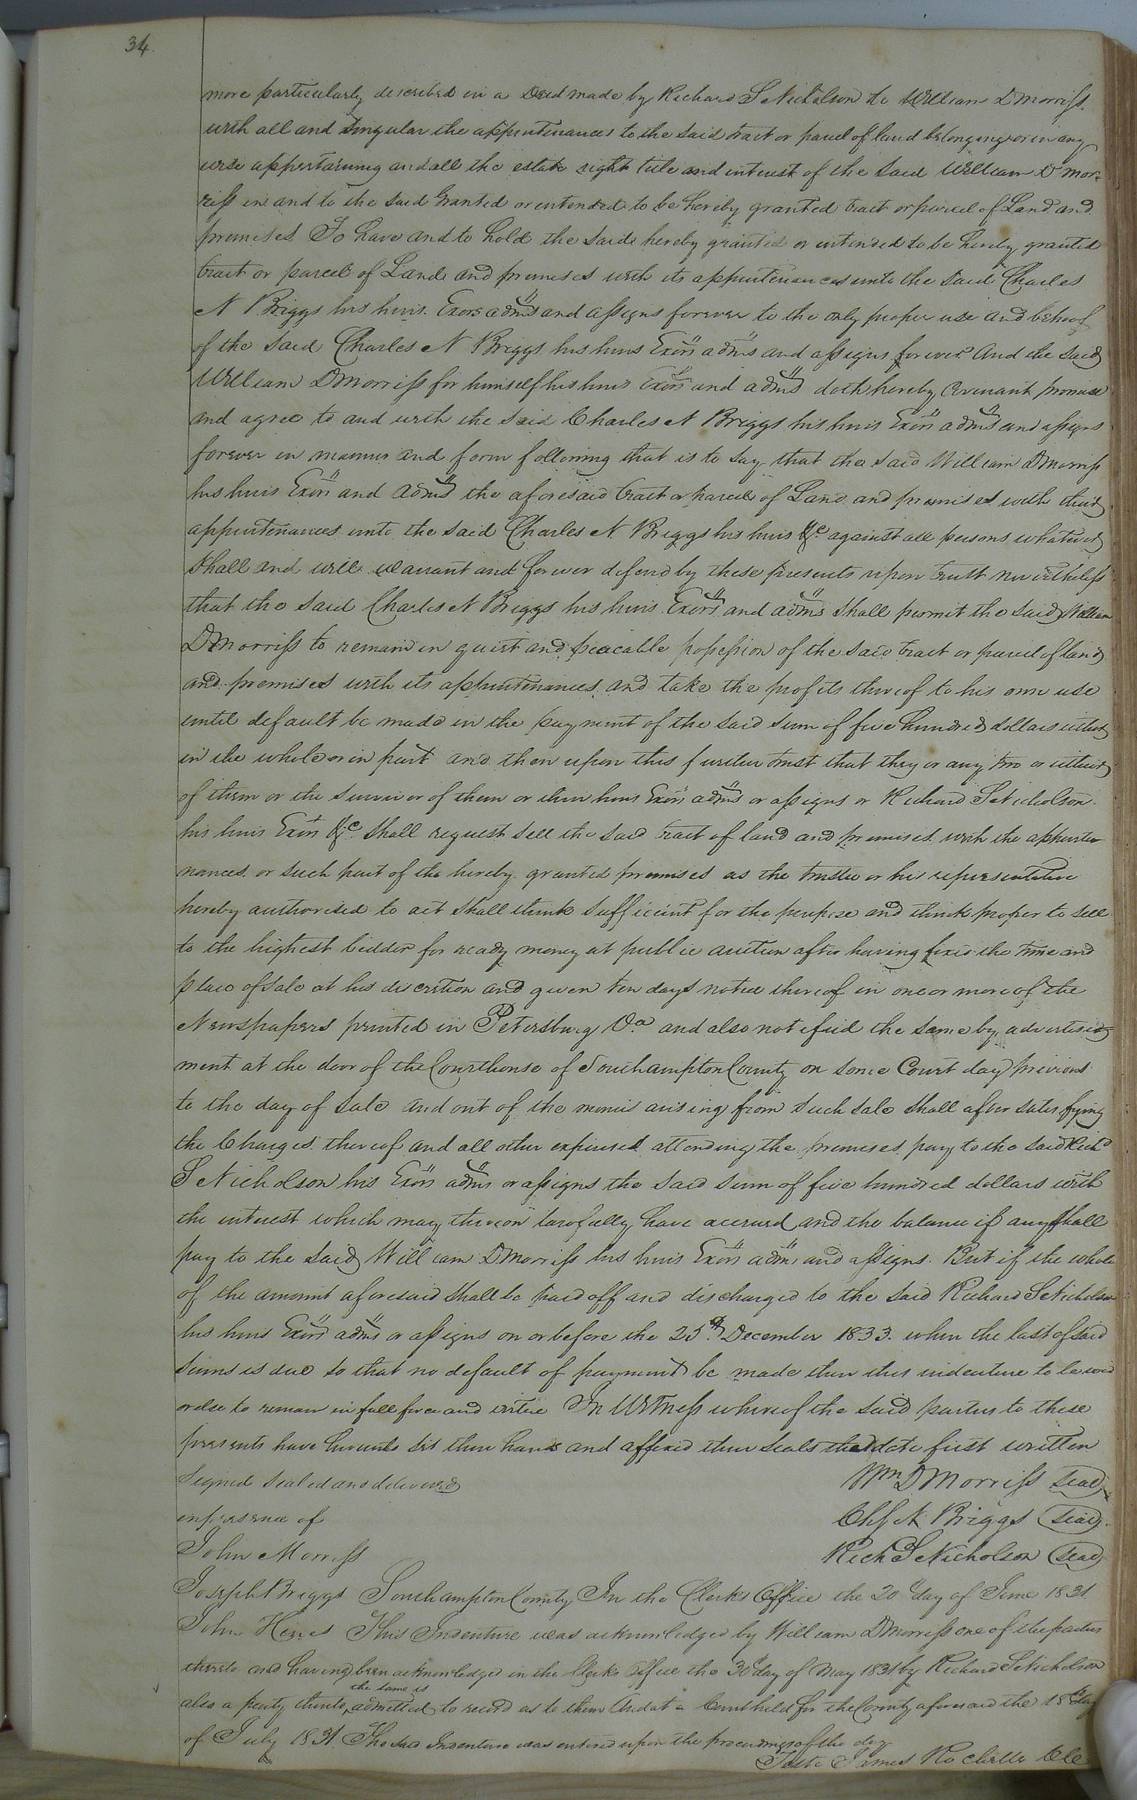 34
more particularly described in a Deed made by Richard S Nicholson to William D Morriss.
with all and Singular the appurtenances to the said tract or parcel of land belonging or in any
wise appertaining and all the estate right title and interest of the said William D Mor-
riss in and to the said granted or intended to be hereby granted tract or parcel of Land and
premises To have and to hold the said hereby granted or intended to be hereby granted
tract or parcel of Land and premises with its appurtenances unto the said Charles
N Briggs his heirs Exors adms and assigns forever to the only proper use and behoof
of the said Charles N Briggs his heirs Exors adms and assigns forever And the said
William D Morriss for himself his heirs Exors and adms doth hereby Covenant promise
and agree to and with the said Charles N Briggs his heirs Exors adms and assigns
forever in manner and form following that is to say that the said William D Morriss
his heirs Exors and adms the aforesaid tract or parcel of Land and premises with their
appurtenances unto the said Charles N Briggs his heirs &c against all persons whatever
Shall and will warrant and forever defend by these presents upon trust nevertheless
that the said Charles N Briggs his heirs Exors and adms Shall permit the said William
D Morriss to remain in quiet and peacable possession of the said tract or parcel of land
and premises with its appurtenances and take the profits thereof to his own use
until default be made in the payment of the said sum of five hundred dollars either
in the whole or in part and then upon this further trust that they or any two or either
of them or the survivor of them or their heirs Exors adms or assigns or Richard S Nicholson
his heirs Exors &c shall request sell the said tract of land and premises with the appurte
nances or such part of the hereby granted premises as the trustee or his representative
hereby authorised to act shall think sufficient for the purpose and think proper to sell
to the highest bidder for ready money at public auction after having fixed the time and
place of sale at his discretion and given ten days notice thereof in one or more of the
Newspapers printed in Petersburg Va and also notified the same by advertise
ment at the door of the Courthouse of Southampton County on some Court day previous
to the day of sale and out of the monies arising from such sale shall after satisfying
the Charges thereof and all other expenses attending the premises pay to the said Richd
S Nicholson his Exors adms or assigns the said sum of five hundred dollars with
the interest which may thereon lawfully have accrued and the balance if any shall
pay to the said William D Morriss his heirs Exors adms and assigns. But if the whole
of the amount aforesaid shall be paid off and discharged to the said Richard S Nicholson
his heirs Exors adms or assigns on or before the 25th December 1833. when the last of said
sums is due so that no default of payment be made then this indenture to be void
or else to remain in full force and virtue In Witness whereof the said parties to these
presents have hereunto set their hands and affixed their seals the date first written
Signed sealed and delivered Wm D Morriss Seal
in presence of Chs N Briggs Seal
John Morriss Rich S Nicholson Seal
Joseph Briggs Southampton County In the Clerks Office the 20 day of June 1831
John This Indenture was acknowledged by William D Morriss one of the parties
thereto and having been acknowledged in the Clerks Office the 30th day of May 1831 by Richard S Nicholson
also a party thereto, the same is admitted to record as to them And at a Court held for the County aforesaid the 18th day
of July 1831 The said Indenture was entered upon the proceedings of the day
Teste James Rochelle Clk